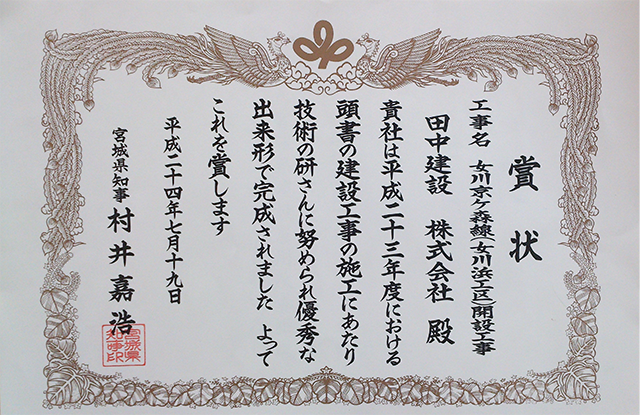 賞状
工事名 女川京ケ森線(女川浜工区)開設工事
田中建設 株式会社 殿
貴社は平成二十三年度における
頭書の建設工事の施工にあたり
技術の研さんに努められ優秀な
出来形で完成されました よって
これを賞します
平成二十四年七月十九日
宮城県知事 村井嘉浩
宮城県
知事印